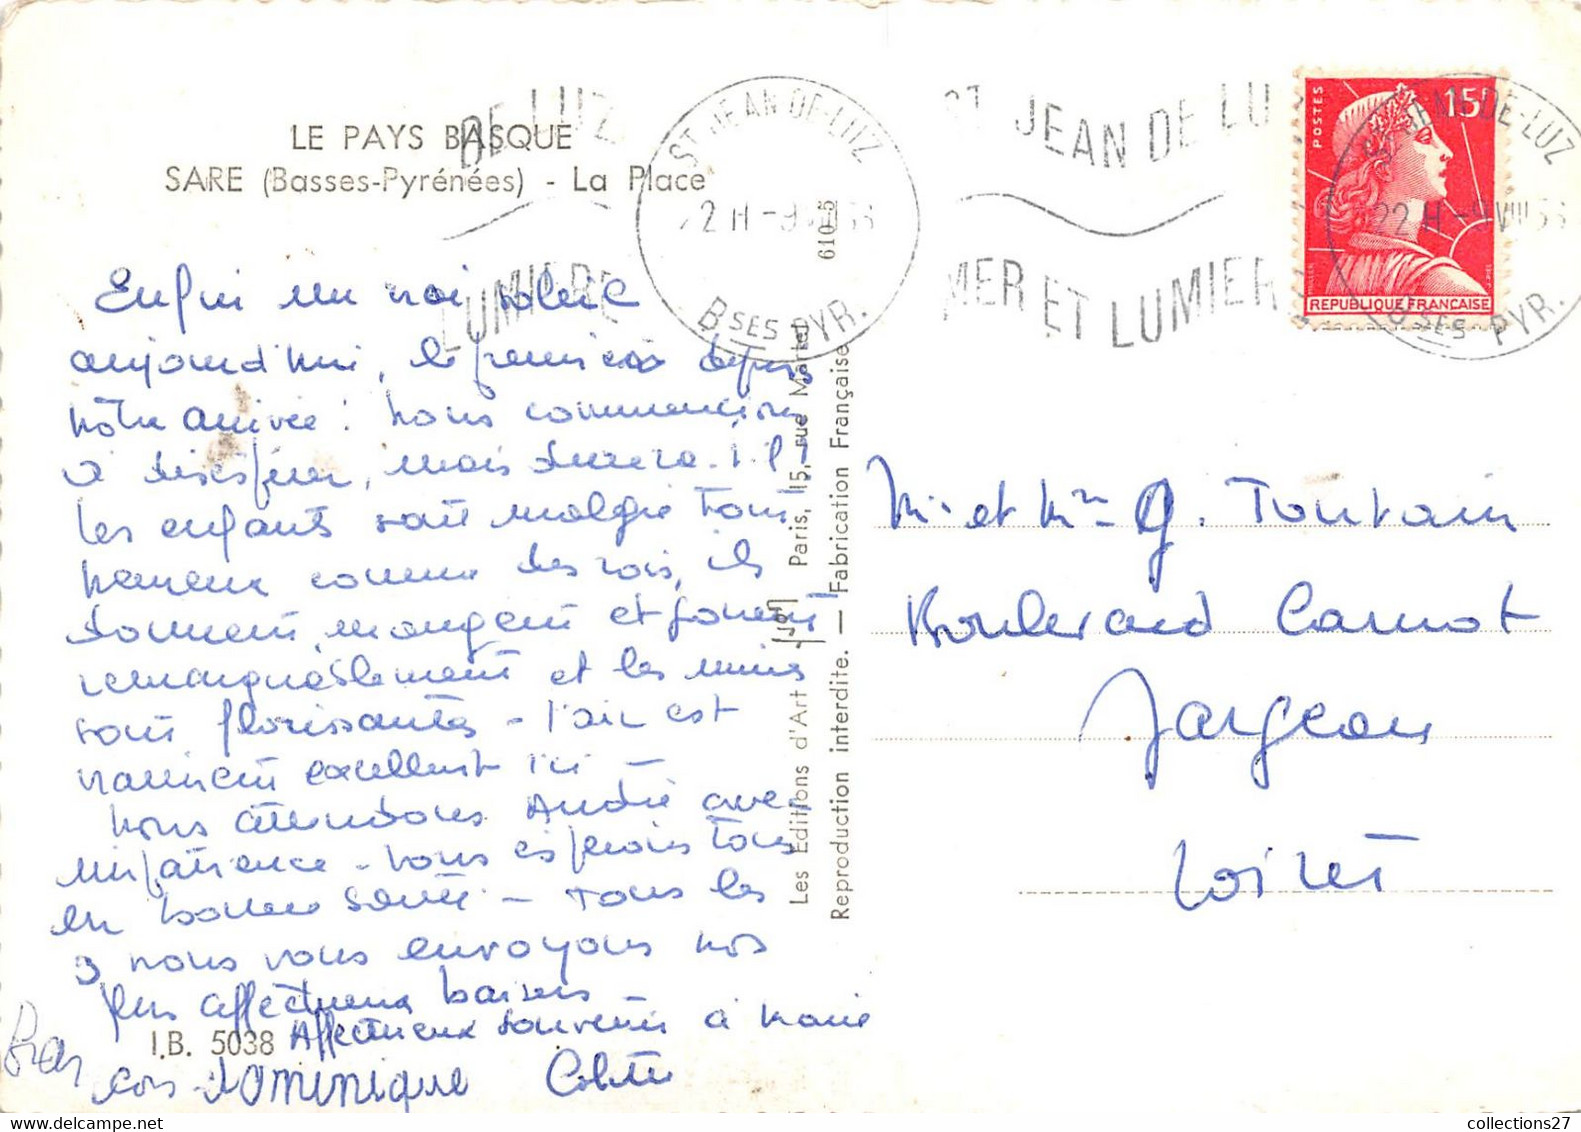 LE PAYS BASQUE
SARE (Basses-Pyrénées) - La Place
DE LUZ
LUMIERE
ST JEAN-DE-LUZ
22 H -9 VIII 56
BSES PYR.
ST JEAN DE LU
MER ET LUMIER
POSTES
15F
REPUBLIQUE FRANÇAISE
ST JEAN-DE-LUZ
22 H -9 VIII 56
BSES PYR.
610-5
Enfin un vrai soleil
aujourd'hui, le premier depuis
nôtre arrivée! nous commencions
à désespérer, mais durera-t-il?
Les enfants sont malgré tout
heureux comme des rois, ils
dorment, mangent et jouent
remarquablement et les mines
sont florissantes - l'air est
vraiment excellent ici -
Nous attendons André avec
impatience - vous espérons tous
en bonne santé - Tous les
3 nous vous envoyons nos
plus affectueux baisers
Affectueux souvenir à Marie
I.B. 5038
DOMINIQUE Colette
Les Editions d'Art "Yvon" Paris, 15, rue Martel
Reproduction interdite. — Fabrication Française
Mr et Mme G. Toutain
Boulevard Carnot
Jargeau
Loiret
collections27